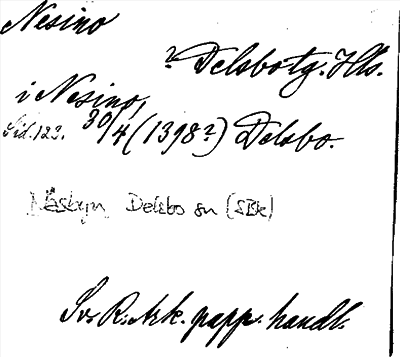 Nesino
? Delsbo tg. Hls.
i Nesino,
Sid. 123. 30/4 (1398?) Delsbo.
Näsbyn Delsbo sn (SBK)
Sv. R. Ark. papp. handl.